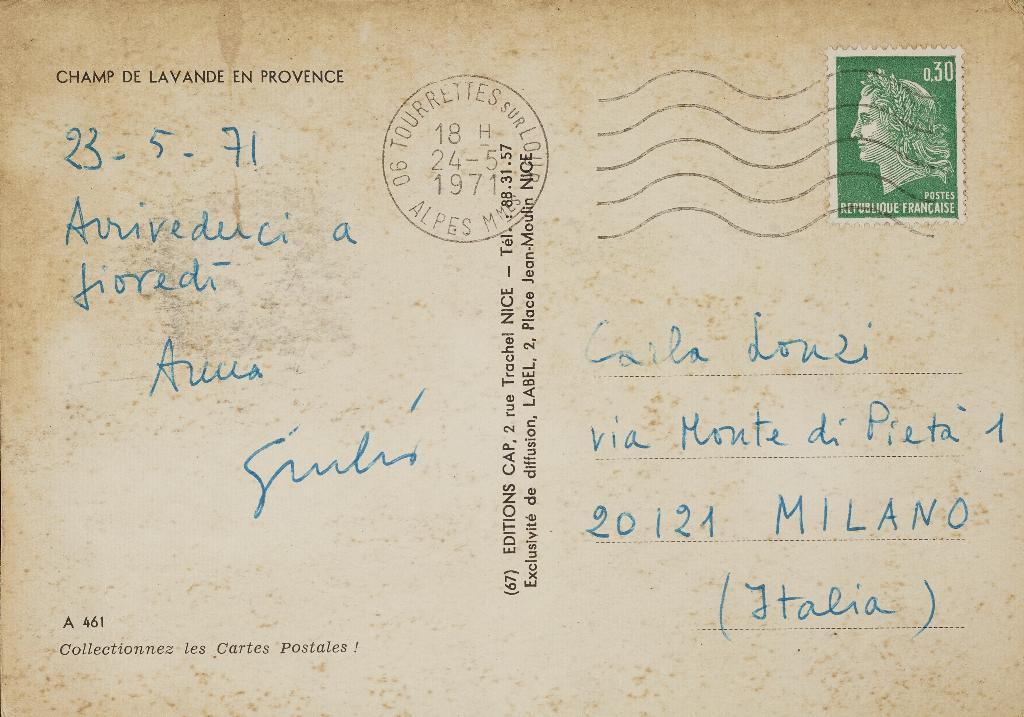 CHAMP DE LAVANDE EN PROVENCE
23 - 5 - 71
Arrivederci a
giovedì
Anna
Giulio
A 461
Collectionnez les Cartes Postales !
06 TOURRETTES SUR LOUP
18 H
24-5
1971
ALPES MMES
(67) EDITIONS CAP, 2 rue Trachel NICE — Tél. : 88.31.57
Exclusivité de diffusion, LABEL, 2, Place Jean-Moulin NICE
0,30
POSTES
RÉPUBLIQUE FRANÇAISE
Carla Lonzi
via Monte di Pietà 1
20121 MILANO
(Italia)